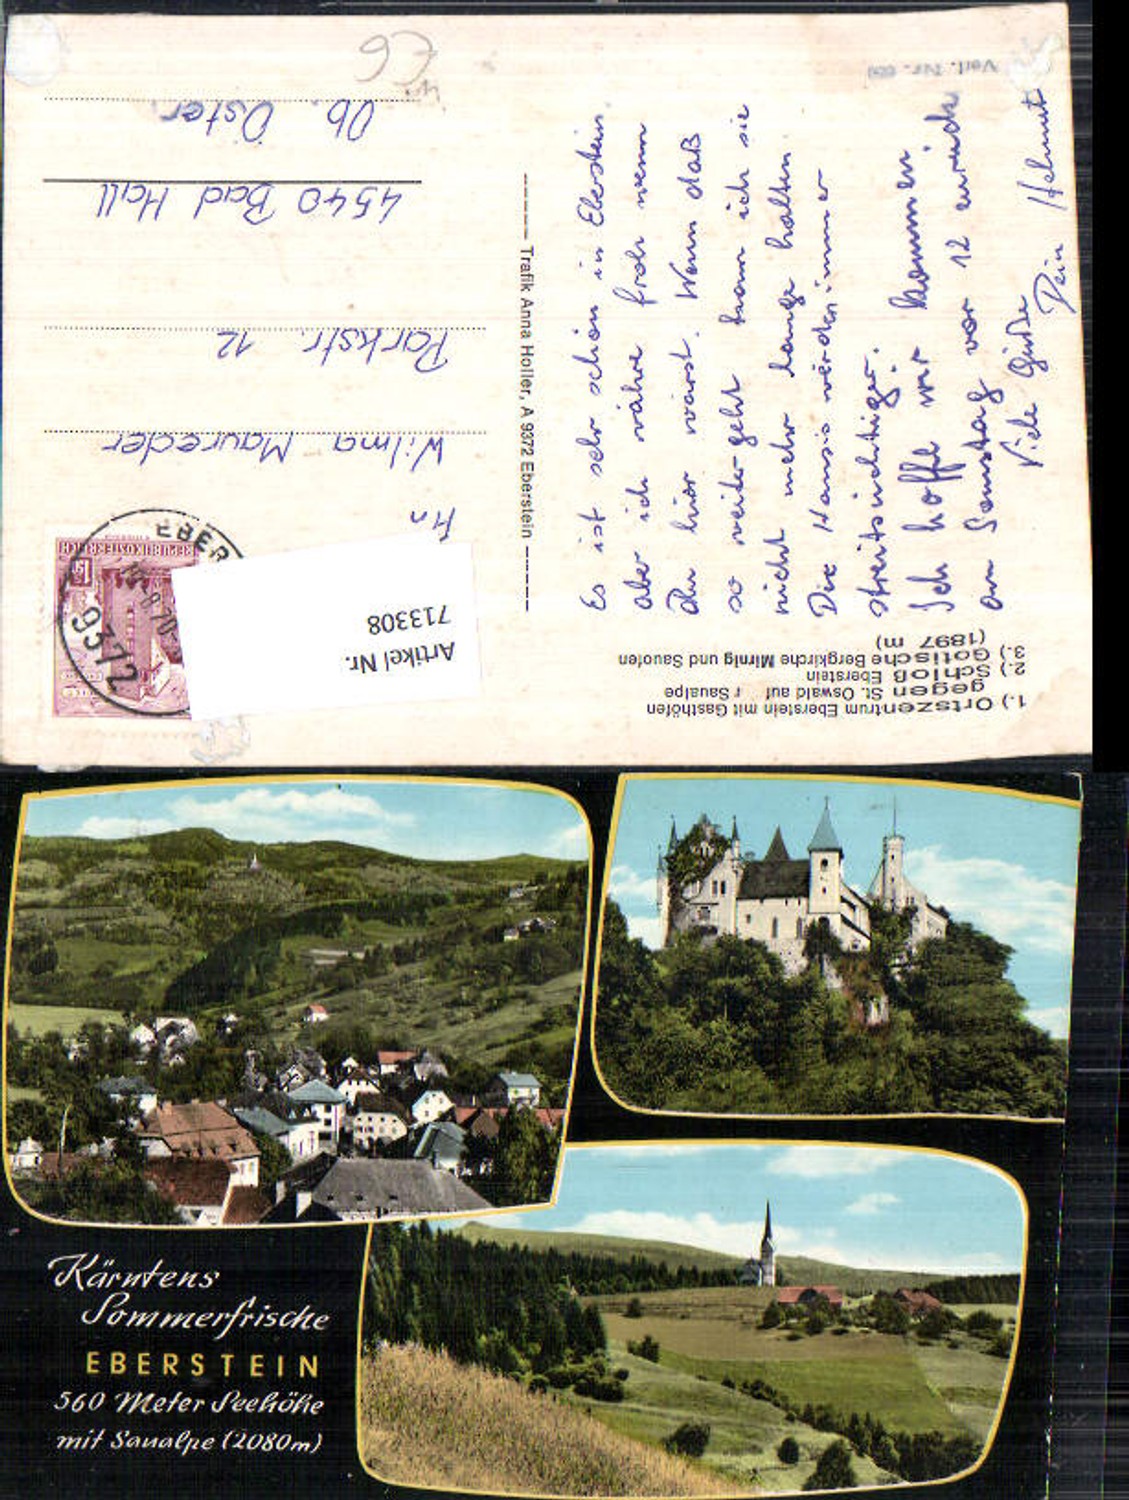 1.) Ortszentrum Eberstein mit Gasthöfen
gegen St. Oswald auf r Saualpe
2.) Schloß Eberstein
3.) Gotische Bergkirche Mirnig und Sauofen
(1897 m)
Es ist sehr schön in Eberstein.
aber ich währe froh wenn
du hier wärst. Wenn daß
so weiter geht kann ich sie
nicht mehr lange halten
Die Hansis werden immer
streitsüchtiger.
Ich hoffe wir kommen
am Samstag vor 12 zurück
Viele Grüße
Dein Helmut
Trafik Anna Holler, A 9372 Eberstein
Verl. Nr.
REPUBLIK ÖSTERREICH
1.50
EBER
9372
Artikel Nr.
713308
Wilma Maureder
Parkstr. 12
4540 Bad Hall
Ob. Öster.
Kärntens
Sommerfrische
EBERSTEIN
560 Meter Seehöhe
mit Saualpe (2080m)